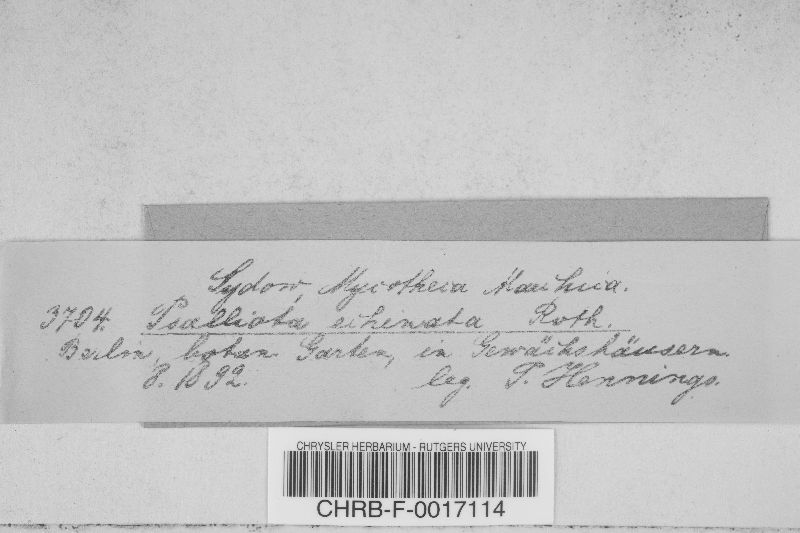 Sydow, Mycotheca Marchica.
3704. Psalliota echinata Roth.
Berlin, botan. Garten, in Gewächshäusern.
8. 1892. leg. P. Hennings.
CHRYSLER HERBARIUM - RUTGERS UNIVERSITY
CHRB-F-0017114